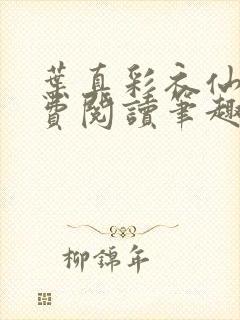 葉真彩衣仙
費閱讀筆趣
柳錦年